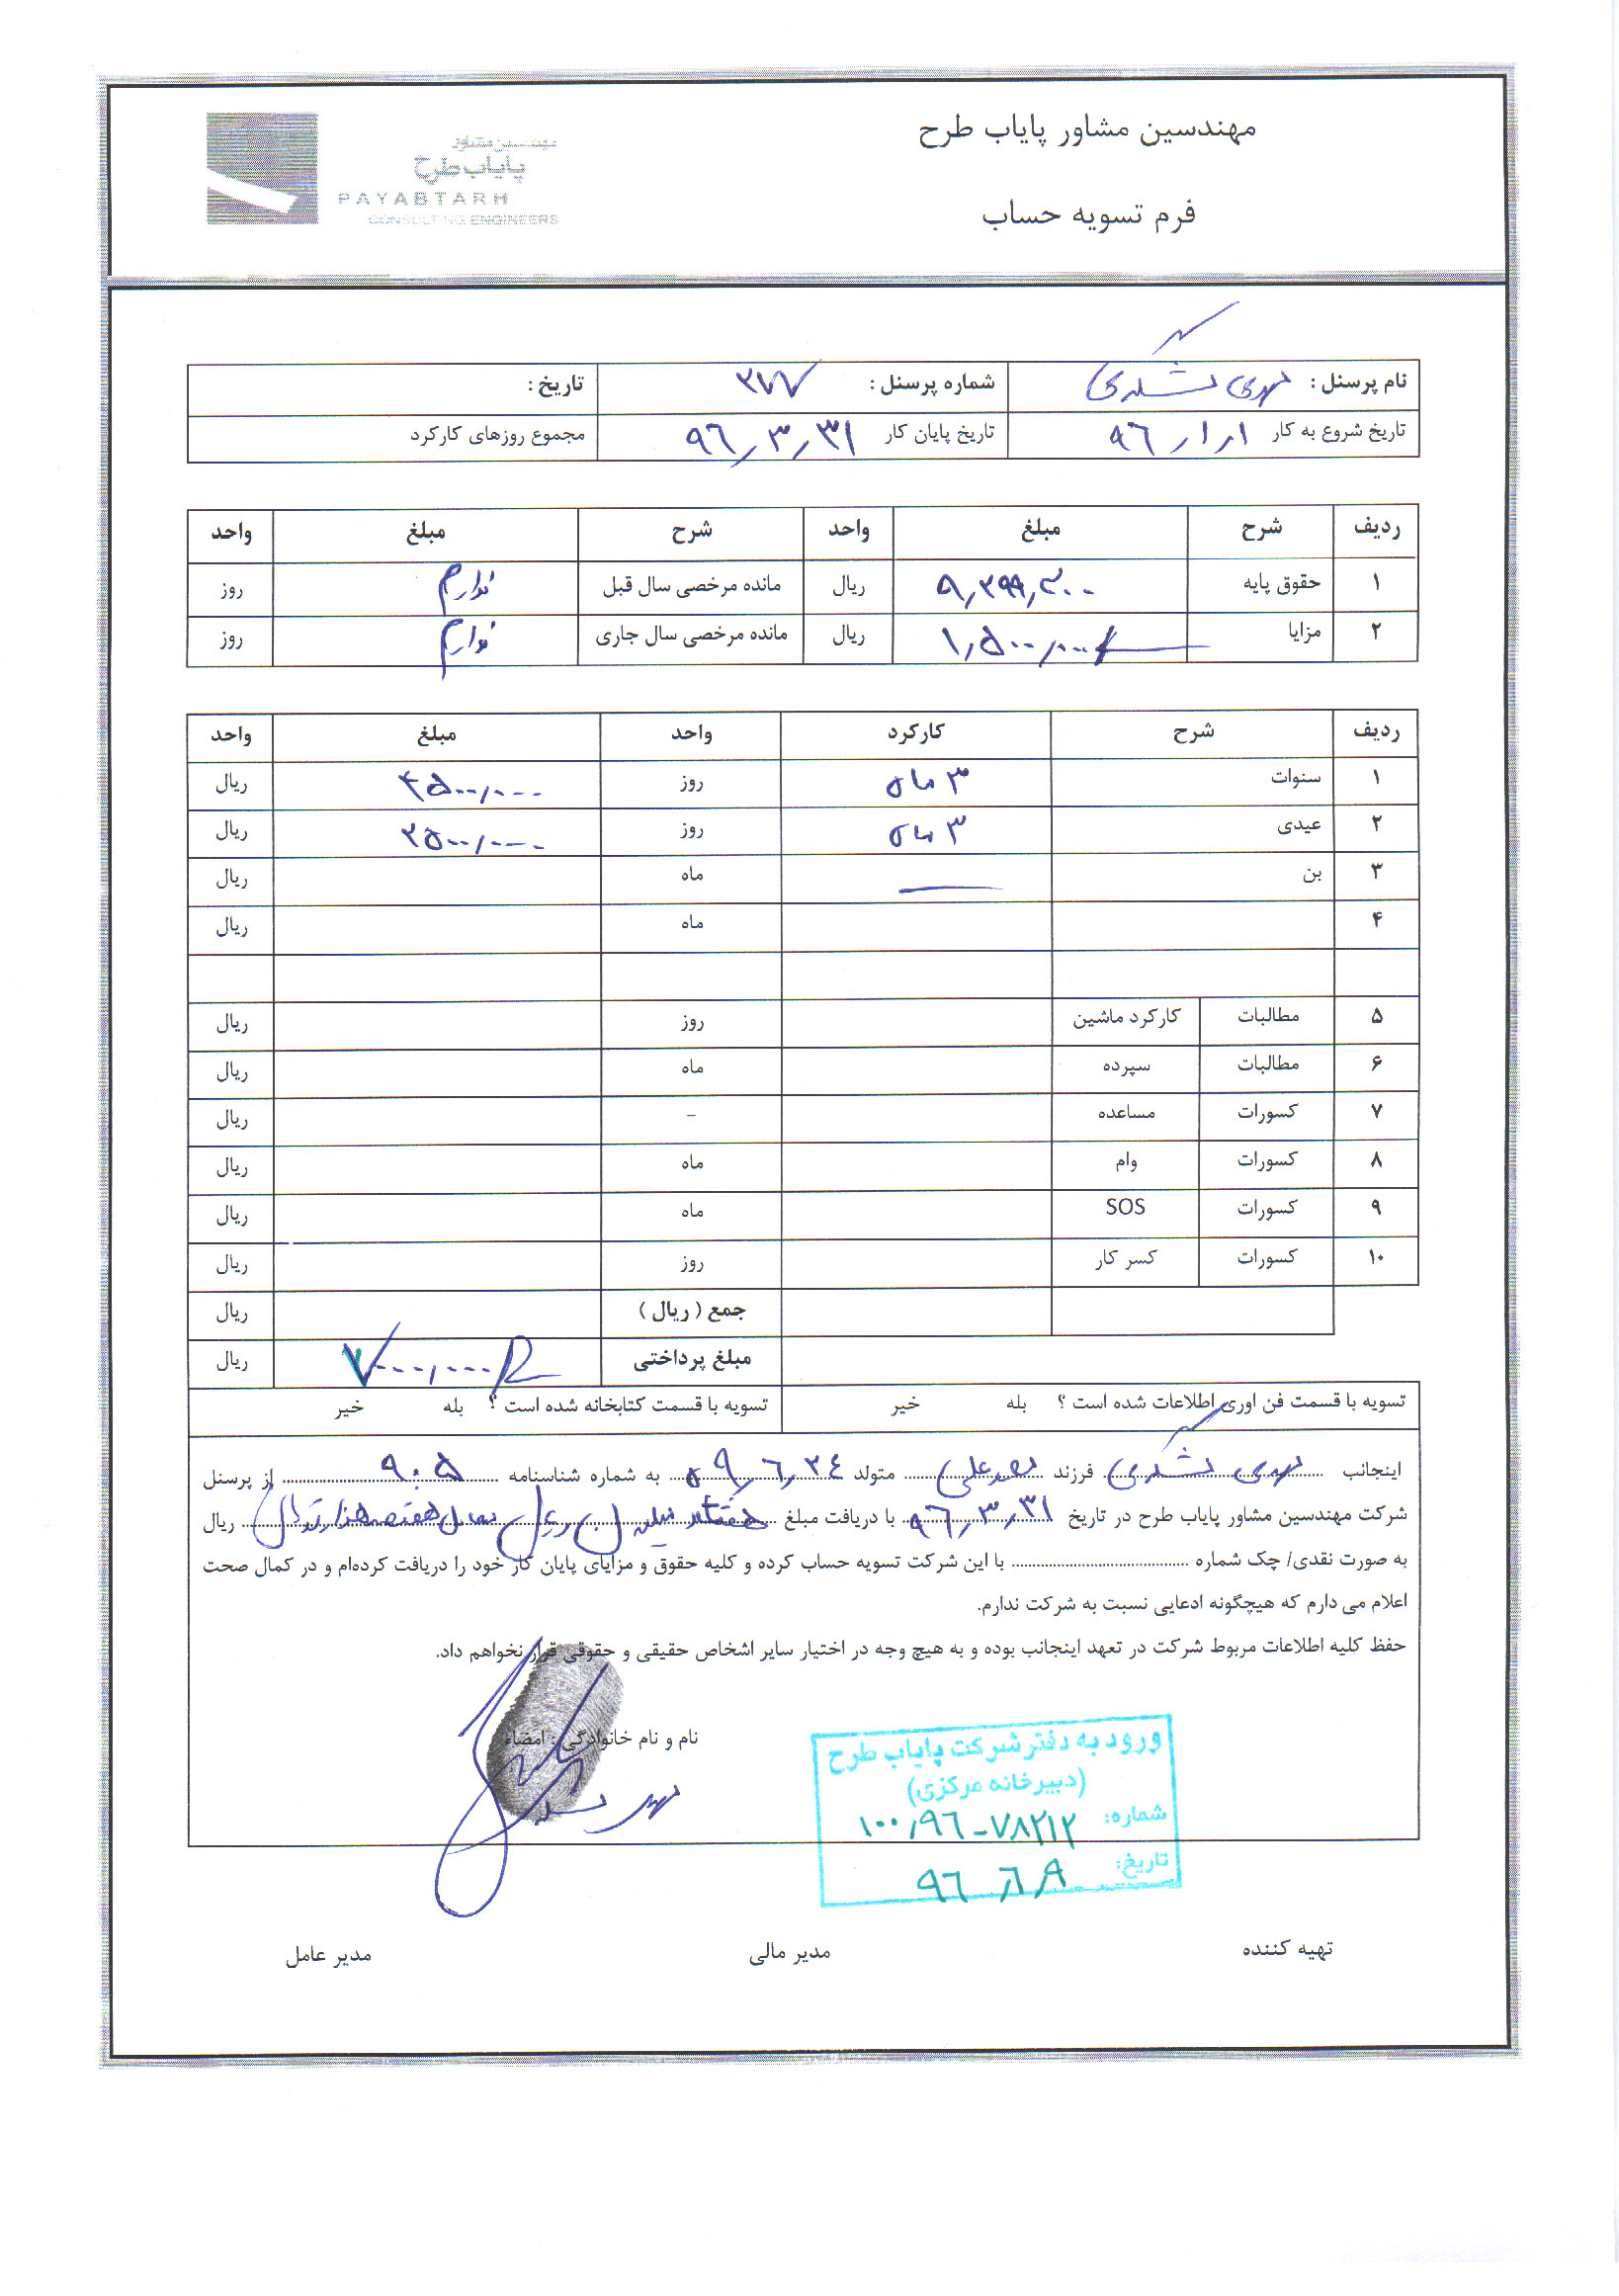 مهندسین مشاور پایاب طرح
مهندسین مشاور
پایاب طرح
PAYABTARH
CONSULTING ENGINEERS
فرم تسویه حساب
نام پرسنل : مهدی شماره پرسنل : ۳۷۷ تاریخ :
تاریخ شروع به کار ۹۶/۱/۱ تاریخ پایان کار ۹۶/۳/۳۱ مجموع روزهای کارکرد
ردیف شرح مبلغ واحد شرح مبلغ واحد
۱ حقوق پایه ۹,۲۹۹,۳۰۰ ریال مانده مرخصی سال قبل ندارم روز
۲ مزایا ۱,۵۰۰,۰۰۰ ریال مانده مرخصی سال جاری ندارم روز
ردیف شرح کارکرد واحد مبلغ واحد
۱ سنوات ۳ ماه روز ۴۵۰۰,۰۰۰ ریال
۲ عیدی ۳ ماه روز ۲۵۰۰,۰۰۰ ریال
۳ بن ماه ریال
۴ ماه ریال
۵ مطالبات کارکرد ماشین روز ریال
۶ مطالبات سپرده ماه ریال
۷ کسورات مساعده - ریال
۸ کسورات وام ماه ریال
۹ کسورات SOS ماه ریال
۱۰ کسورات کسر کار روز ریال
جمع ( ریال ) ریال
مبلغ پرداختی ۷۰۰۰,۰۰۰ ریال
تسویه با قسمت فن اوری اطلاعات شده است ؟ بله خیر تسویه با قسمت کتابخانه شده است ؟ بله خیر
اینجانب مهدی فرزند متولد ۵۹/۶/۲۴ به شماره شناسنامه ۹۰۵ از پرسنل
شرکت مهندسین مشاور پایاب طرح در تاریخ ۹۶/۳/۳۱ با دریافت مبلغ ریال
به صورت نقدی/ چک شماره با این شرکت تسویه حساب کرده و کلیه حقوق و مزایای پایان کار خود را دریافت کرده‌ام و در کمال صحت
اعلام می دارم که هیچگونه ادعایی نسبت به شرکت ندارم.
حفظ کلیه اطلاعات مربوط شرکت در تعهد اینجانب بوده و به هیچ وجه در اختیار سایر اشخاص حقیقی و حقوقی قرار نخواهم داد.
نام و نام خانوادگی : امضاء
مهدی
ورود به دفتر شرکت پایاب طرح
(دبیرخانه مرکزی)
شماره: ۱۰۰/۹۶-۷۸۲۱۲
تاریخ: ۹۶/۶/۹
تهیه کننده مدیر مالی مدیر عامل